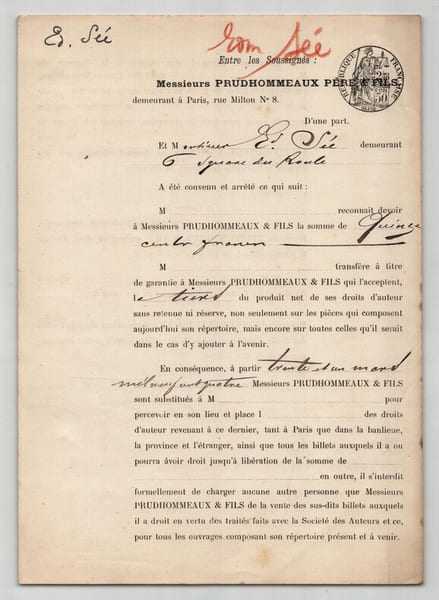 Ed. Sée
rom Sée
Entre les Soussignés :
Messieurs PRUDHOMMEAUX PÈRE & FILS,
RÉPUBLIQUE FRANÇAISE
demeurant à Paris, rue Milton N° 8.
D'une part.
Et Monsieur Ed. Sée demeurant
6 Square du Roule
A été convenu et arrêté ce qui suit :
M reconnait devoir
à Messieurs PRUDHOMMEAUX & FILS la somme de Quinze
cents francs
M transfère à titre
de garantie à Messieurs PRUDHOMMEAUX & FILS qui l'acceptent,
le tiers du produit net de ses droits d'auteur
sans retenue ni réserve, non seulement sur les pièces qui composent
aujourd'hui son répertoire, mais encore sur toutes celles qu'il serait
dans le cas d'y ajouter à l'avenir.
En conséquence, à partir trente et un mars
mil neuf cent quatre Messieurs PRUDHOMMEAUX & FILS
sont substitués à M pour
percevoir en son lieu et place l des droits
d'auteur revenant à ce dernier, tant à Paris que dans la banlieue,
la province et l'étranger, ainsi que tous les billets auxquels il a ou
pourra avoir droit jusqu'à libération de la somme de
en outre, il s'interdit
formellement de charger aucune autre personne que Messieurs
PRUDHOMMEAUX & FILS de la vente des sus-dits billets auxquels
il a droit en vertu des traités faits avec la Societé des Auteurs et ce,
pour tous les ouvrages composant son répertoire présent et à venir.